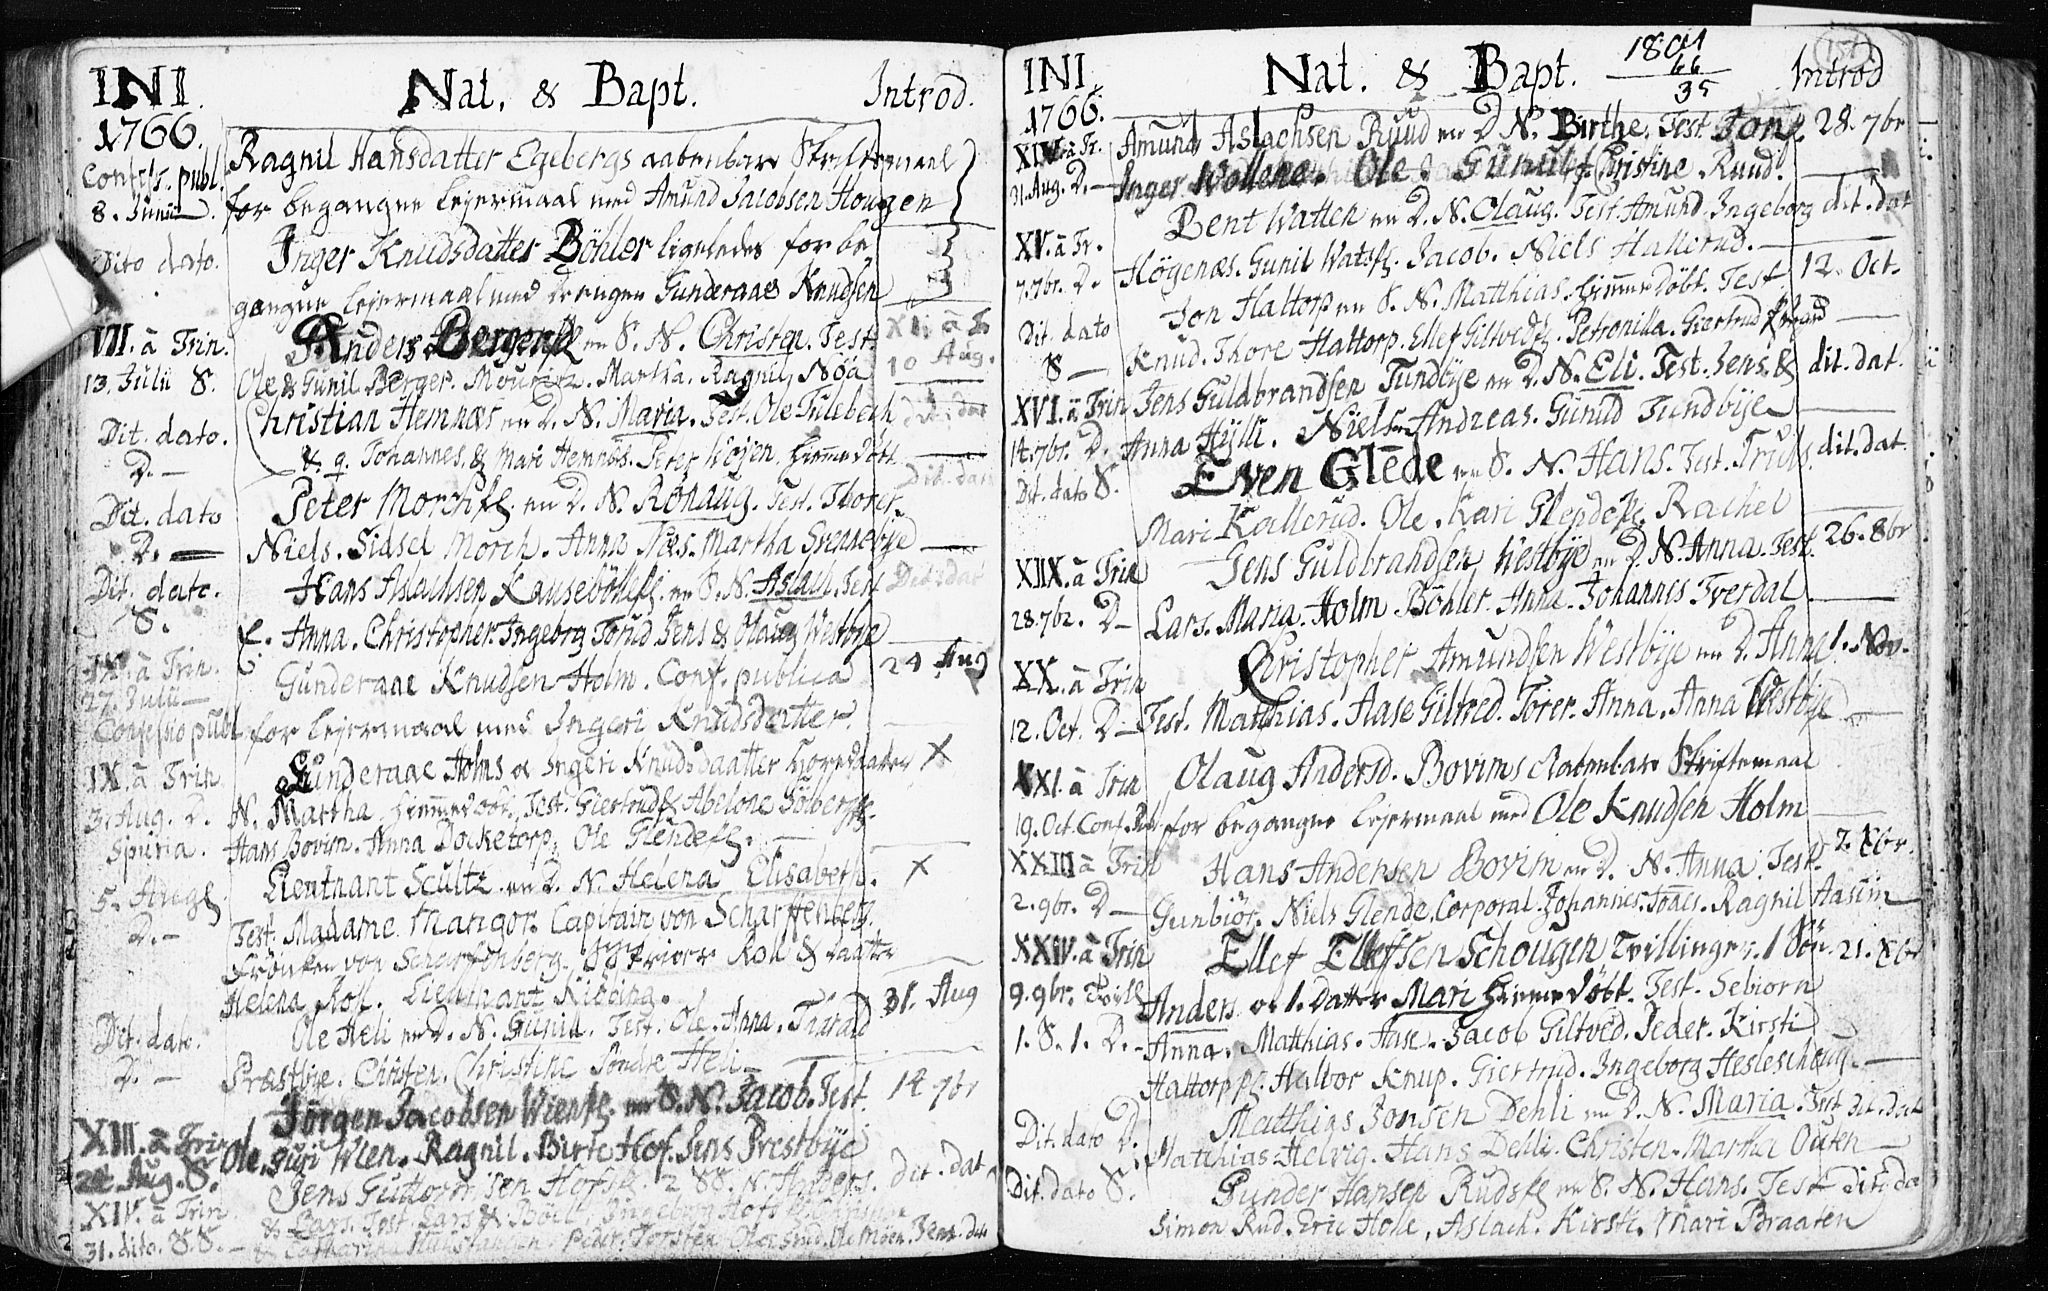 INI. Nat. & Bapt. Introd.
1766.
Confess. publ. Ragnil Hansdatter Egebergs aabenbare Skriftemaal
8. Junii. for begangne Lejermaal med Amund Jacobsen Hougen
Dito dato. Inger Knudsdatter Böhler ligeledes for be-
gangne Lejermaal med Gunderaae Knudsen
VII. à Trin. Anders Berger S. N. Christen. Test. XI. à T.
13. Julii S. Ole & Gunil Berger. Mouritz. Martha. Ragnil, Nöa 10 Aug.
Dit. dato. Christian Hemnæs D. N. Maria. Test. Ole Tulebech Dit. dat
D. — & q. Johannes. & Mari Hemnæs. Peter Höjen. Hiemmedöbt.
Dit. dato Peter Morch D. N. Rönaug. Test. Thorer. Dit. dat
D. — Niels. Sidsel Morch. Anna Næs. Martha Svensebye
Dit. dato. Hans Aslachsen Kauseböl S. N. Aslach. Test Dit. dat
S. Anna. Christopher. Ingeborg Torud Jens & Olaug Westbye
IX. à Trin. Gunderaae Knudsen Holm. Conf. publica 24 Aug
27. Julii —
Confessio publ. for Lejermaal med Ingeri Knudsdatter.
IX. à Trin Gunderaae Holms & Ingeri Knudsdaatter Horedaatter X
3. Aug. D. N. Martha. Hiemmedöbt. Test. Giertrud Abelone Sölberg
Spuria. Hans Bovim. Anna Docketorp. Ole Glende
5. Aug Lieutnant Scultz D. N. Helena Elisabeth. X
D. — Test. Madame Mangor. Capitain von Scharffenberg.
Fröiken von Scharfenberg. Roll & Daatter
Helena Roll. Lieutnant Kiöeing.
Dit. dato. Ole Heli D. N. Gunill. Test. Ole. Anna. Taarald 31. Aug
D. — Præstbye. Christen. Christine Söndre Heli
Jörgen Jacobsen Wien S. N. Jacob. Test. 14 7br
XIII. à Trin Ole. Guri Wien. Ragnil. Birte Hof. Jens Prestbye
24. Aug. S. Jens Guttormsen Hof 2 SS. N. Anders. dit. dat
XIV. à Trin. & Lars. Test. Lars & Böel. Ingeborg Hof
31. dito. S.S. Peder. Torsten
INI. Nat. & Bapt. 1801 Introd
1766. 66
35
XIV à Tr. Amund Aslachsen Ruud D. N. Birthe. Test Jon & 28. 7br
31. Aug. D. — Inger Wollene. Ole & Gunil Christine Ruud.
XV. à Tr. Bent Watten D. N. Olaug. Test. Amund. Ingeborg dit. dat
7. 7br. D. Högenæs. Gunil Wats. Jacob. Niels Hallerud. —
Dit. dato Jon Hattorp S. N. Matthias. Hiemmedöbt. Test 12. Oct.
S — Knud. Thore Hattorp. Ellef Giltved. Petronilla. Giertrud
XVI. à Trin Jens Guldbrandsen Tundbye D. N. Eli. Test. Jens. & dit. dat.
14. 7br. D. Anna Hylli. Niels Andreas. Gunild Tundbye
Dit. dato S. Even Glede S. N. Hans. Test. Truls. dit. dat.
Mari Kallerud. Ole. Kari Glende. Rachel
XIIX. à Trin Jens Guldbrandsen Westbye D. N. Anna. Test. 26. 8br
28. 7br. D — Lars. Maria. Holm. Böhler. Anna. Johannes Tverdal
XX. à Trin Christopher Amundsen Westbye D. Anne 1. Nov.
12. Oct. D — Test. Matthias. Aase Giltved. Torer. Anna. Anna Westbye
XXI. à Trin Olaug Andersd. Bovims Aabenbare Skriftemaal
19. Oct. Conf. Publ for begangne Lejermaal med Ole Knudsen Holm
XXIII à Trin Hans Andersen Bovim D. N. Anna. Test. 2. Xbr.
2. 9br. D — Gunbiör. Niels Glende. Corporal. Johannes. Ragnil Aaseim
XXIV. à Trin Ellef Ellefsen Schougen Tvillinger. 1 Sön 21. Xbr
9. 9br. Anders & 1. Datter Mari Hiemmedöbt. Test. Sebiorn
1. S. 1. D. Anna. Matthias. Aase. Jacob Giltved. Peder. Kirsti
Hattorp. Halvor Knup. Giertrud. Ingeborg Hesleschoug. —
Dit. dato D. Matthias Jonsen Dehli D. N. Maria. Test dit. dat
Matthias. Helvig. Hans Dehli. Christen. Martha Outen
Dit. dato S. Gunder Hansen Ruds S. N. Hans. Test dit. da
Simon Rud. Eric Hole. Aslach. Kirsti. Mari Braaten